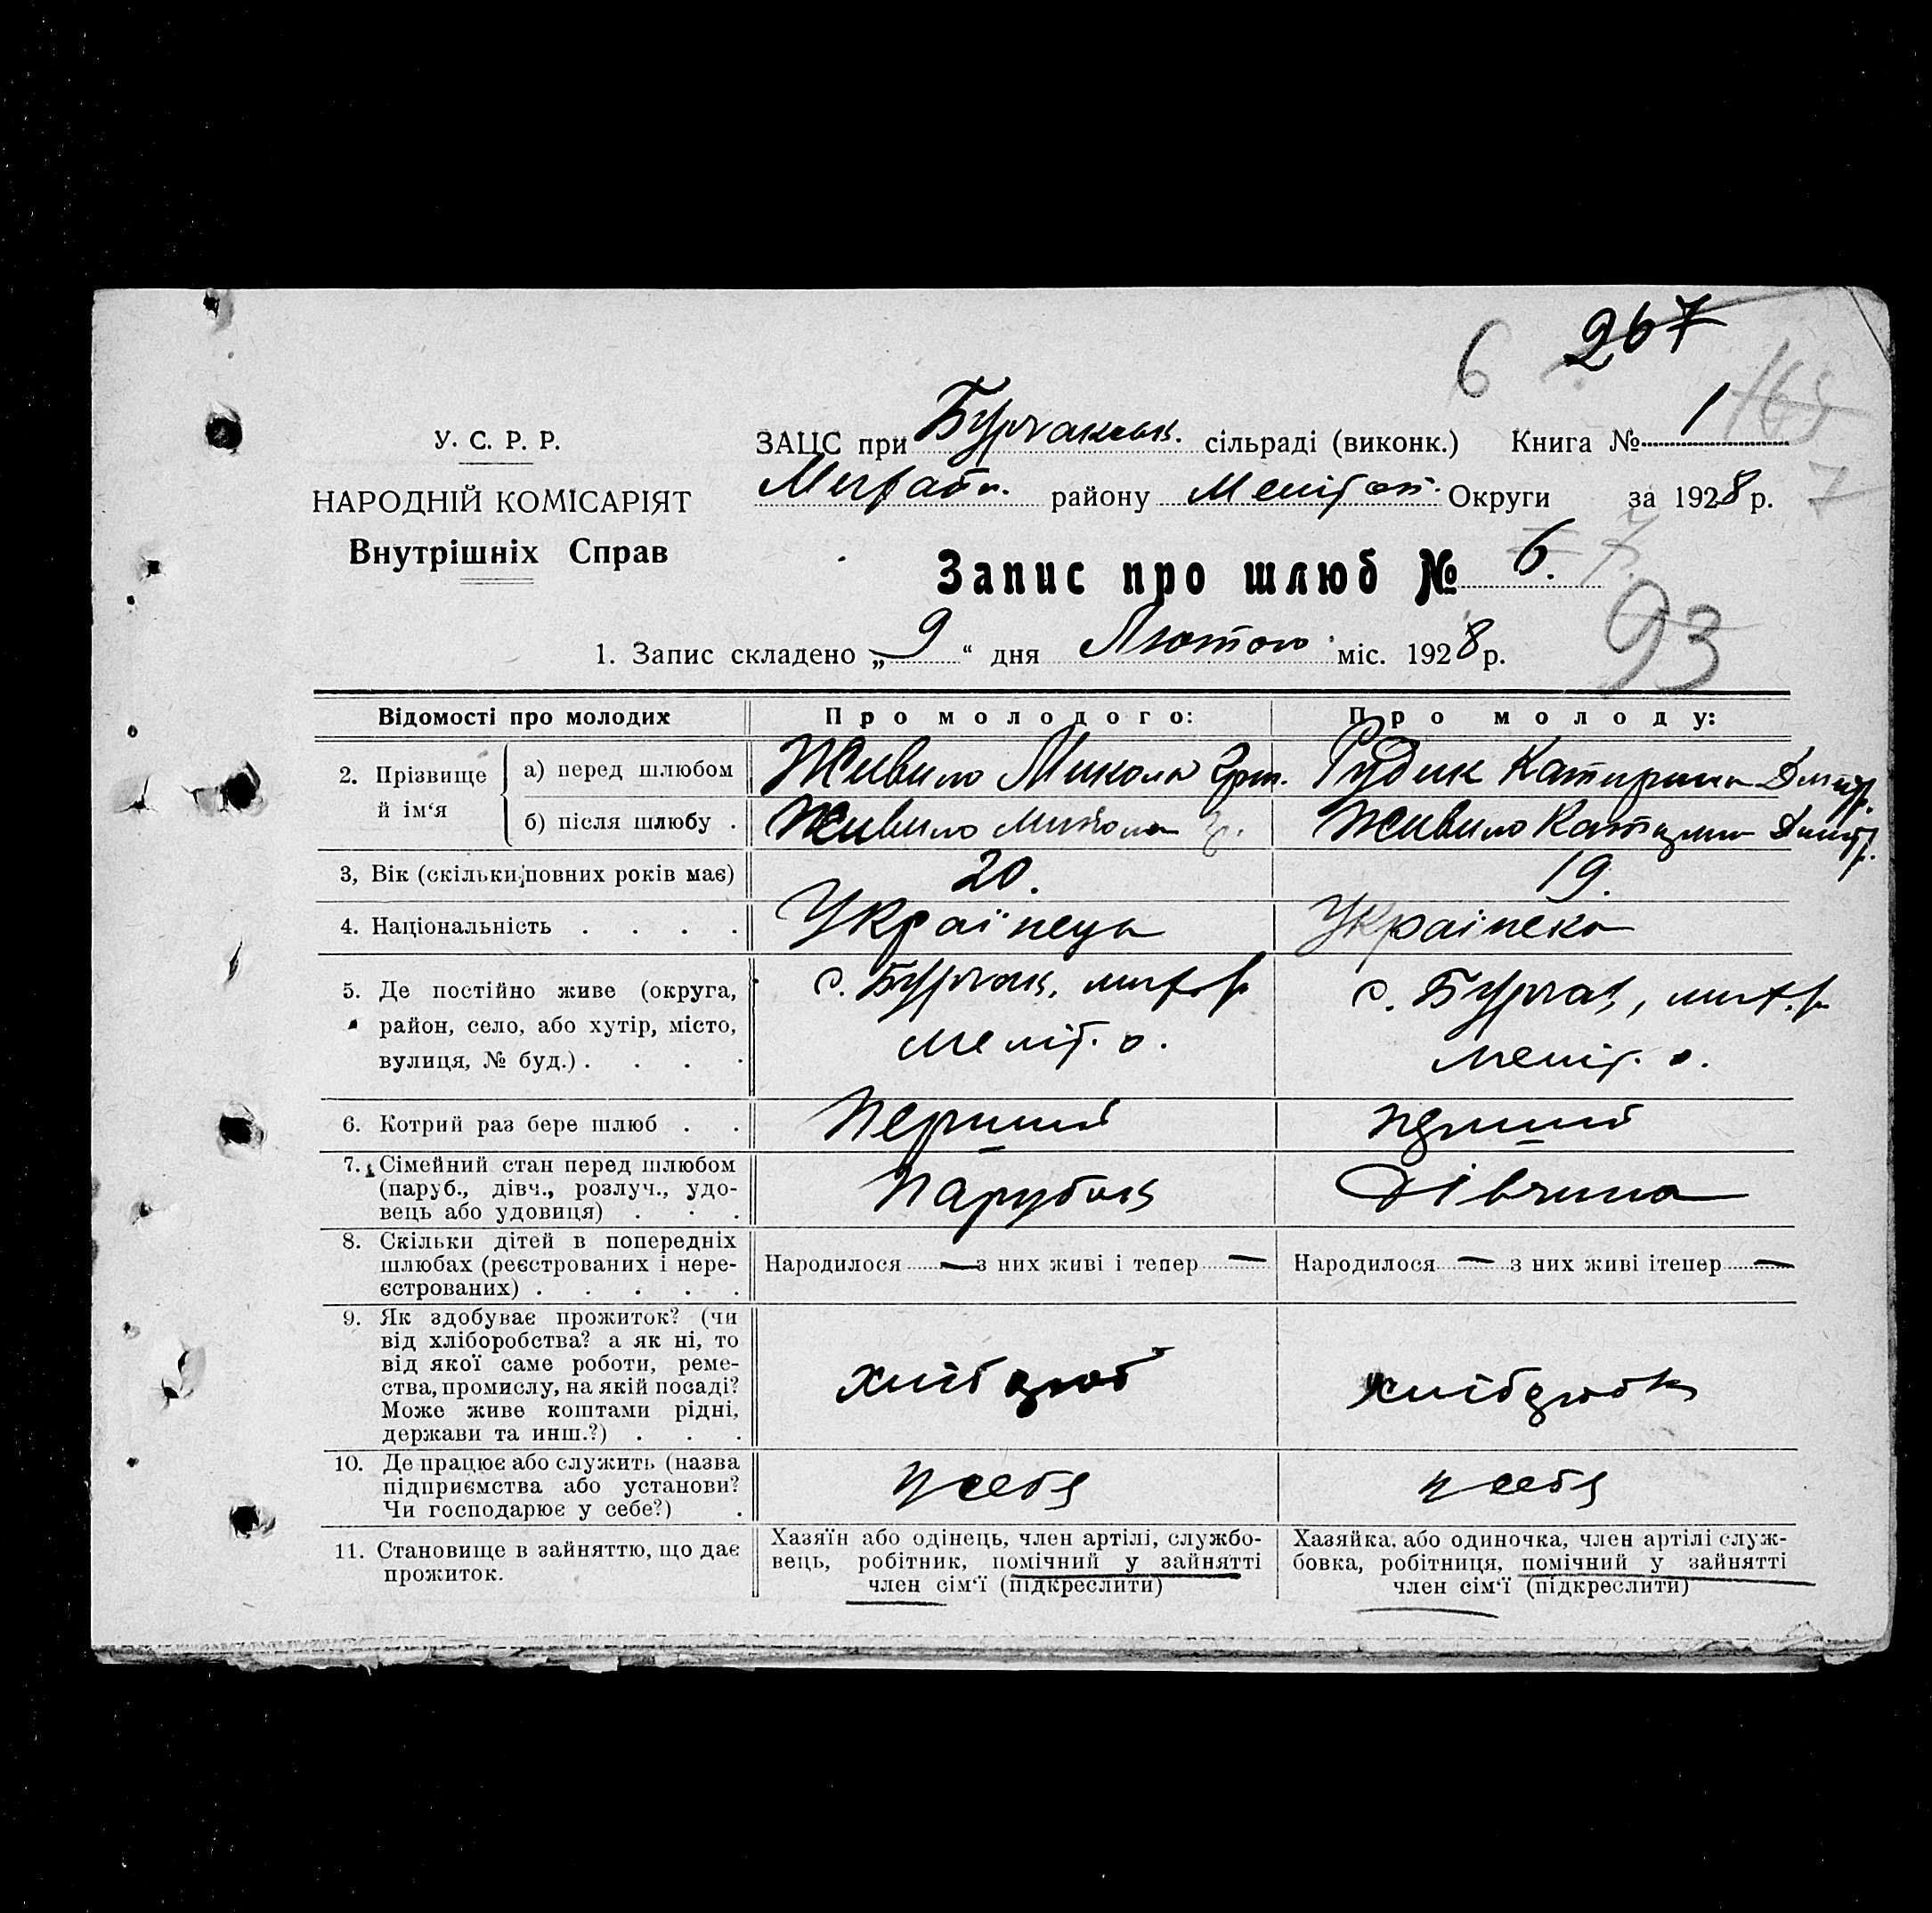 6 267
165
У. С. Р. Р.
ЗАЦС при Бурчакськ. сільраді (виконк.) Книга № 1
НАРОДНІЙ КОМІСАРІЯТ
району Меліт. Округи за 1928 р. 7
Внутрішніх Справ
Запис про шлюб № 6. 7.
93
1. Запис складено „9“ дня Лютого міс. 1928 р.
Відомості про молодих Про молодого: Про молоду:
2. Прізвище й ім‘я
а) перед шлюбом Живило Микола Григ. Рудик Катирина Дмитр.
б) після шлюбу . Живило Микола Г. Живило Катирина Дмитр.
3, Вік (скільки повних років має) 20. 19.
4. Національність . . . . Українець Українська
5. Де постійно живе (округа, с. Бурчак, с. Бурчак,
район, село, або хутір, місто, Меліт. о. Меліт. о.
вулиця, № буд.) . . . .
6. Котрий раз бере шлюб . . Перший перший
7. Сімейний стан перед шлюбом
(паруб., дівч., розлуч., удо- Парубок Дівчина
вець або удовиця) . . .
8. Скільки дітей в попередніх
шлюбах (реєстрованих і нере- Народилося — з них живі і тепер — Народилося — з них живі ітепер —
єстрованих) . . . . .
9. Як здобуває прожиток? (чи
від хліборобства? а як ні, то
від якої саме роботи, реме-
ства, промислу, на якій посаді? хлібороб
Може живе коштами рідні,
держави та инш.?) . . .
10. Де працює або служить (назва
підприємства або установи? у себя у себя
Чи господарює у себе?) .
11. Становище в зайняттю, що дає
прожиток.
Хазяїн або одінець, член артілі, службо-
вець, робітник, помічний у зайнятті
член сім‘ї (підкреслити)
Хазяйка, або одиночка, член артілі служ-
бовка, робітниця, помічний у зайнятті
член сім‘ї (підкреслити)